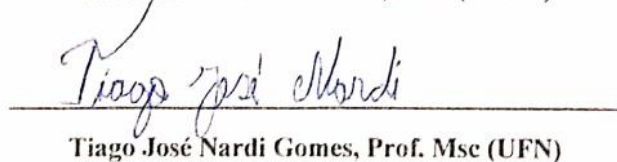 Tiago José Nardi
Tiago José Nardi Gomes, Prof. Msc (UFN)